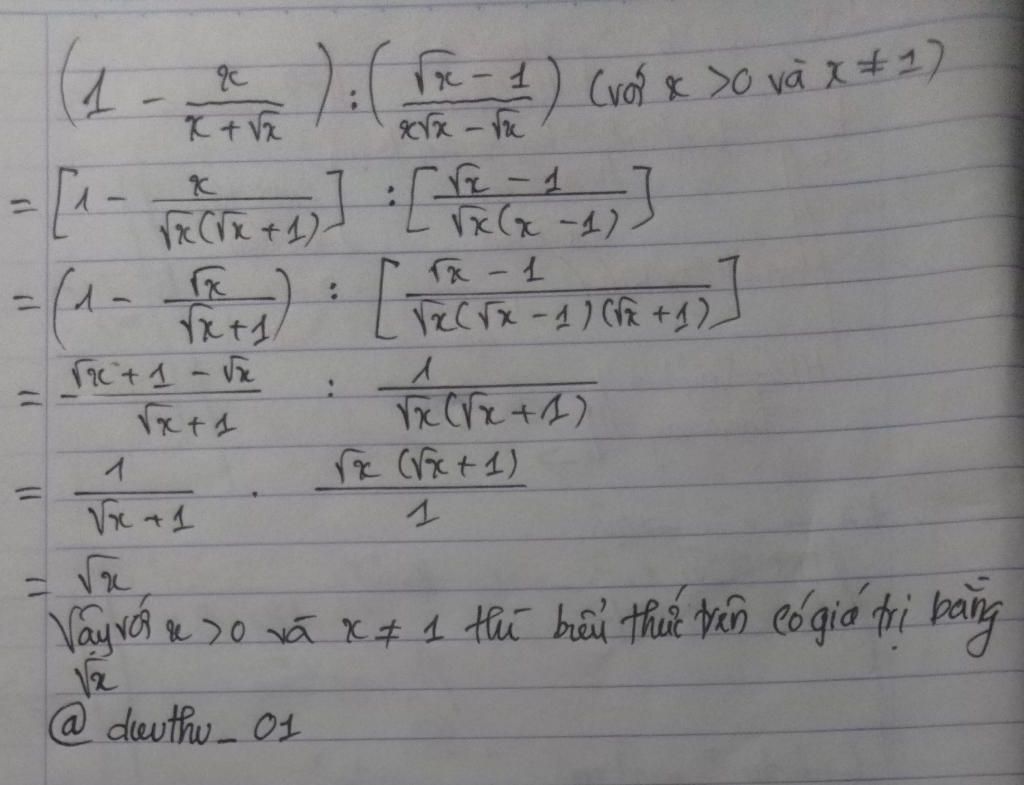 (1 - x/(x + √x)) : ((√x - 1)/(x√x - √x)) (với x > 0 và x ≠ 1)
= [1 - x/(√x(√x + 1))] : [(√x - 1)/(√x(x - 1))]
= (1 - √x/(√x + 1)) : [(√x - 1)/(√x(√x - 1)(√x + 1))]
= (√x + 1 - √x)/(√x + 1) : 1/(√x(√x + 1))
= 1/(√x + 1) . (√x(√x + 1))/1
= √x
Vậy với x > 0 và x ≠ 1 thì biểu thức trên có giá trị bằng
√x
@ dieuthu_01